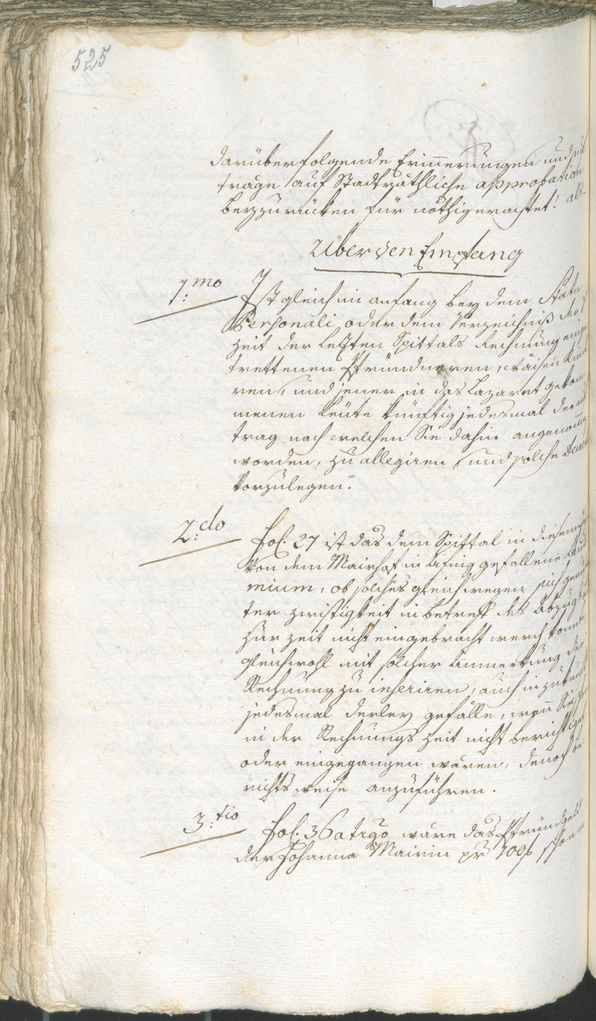 525
darüber folgende Erinnerungen und
träge auf Stadträthliche approbation
beyzurücken für nöthig erachtet! als
Uber den Empfang
1:mo Ist gleich im anfang bey dem Statu
Personali, oder dem Verzeichniß der
Zeit der letzten Spittals Rechnung
trettenen Pfründneren,
ren, und jener in das Lazaret gekom
menen Leüte künftig jedesmal der
trag nach welchen Sie dahin angenommen
worden, zu allegiren, und solche
vorzulegen.
2:do fol: 27 ist das dem Spittal in diesem
von dem Mairhof in Afing gefallene
mium, ob solches gleich wegen
ter zwistigkeit in betreff des Abzugs
zur zeit nicht eingebracht werden konnte
gleichwohl mit solcher Anmerkung der
Rechnung zu inseriren, auch in zukunft
jedesmal derley gefälle, wen Sie
in der Rechnungs Zeit nicht berichtiget
oder eingegangen wären, denoch be
richts weise anzuführen.
3:tio fol: 36 a tergo wäre das Pfründgeld
der Johanna Mairin pr 100f schon